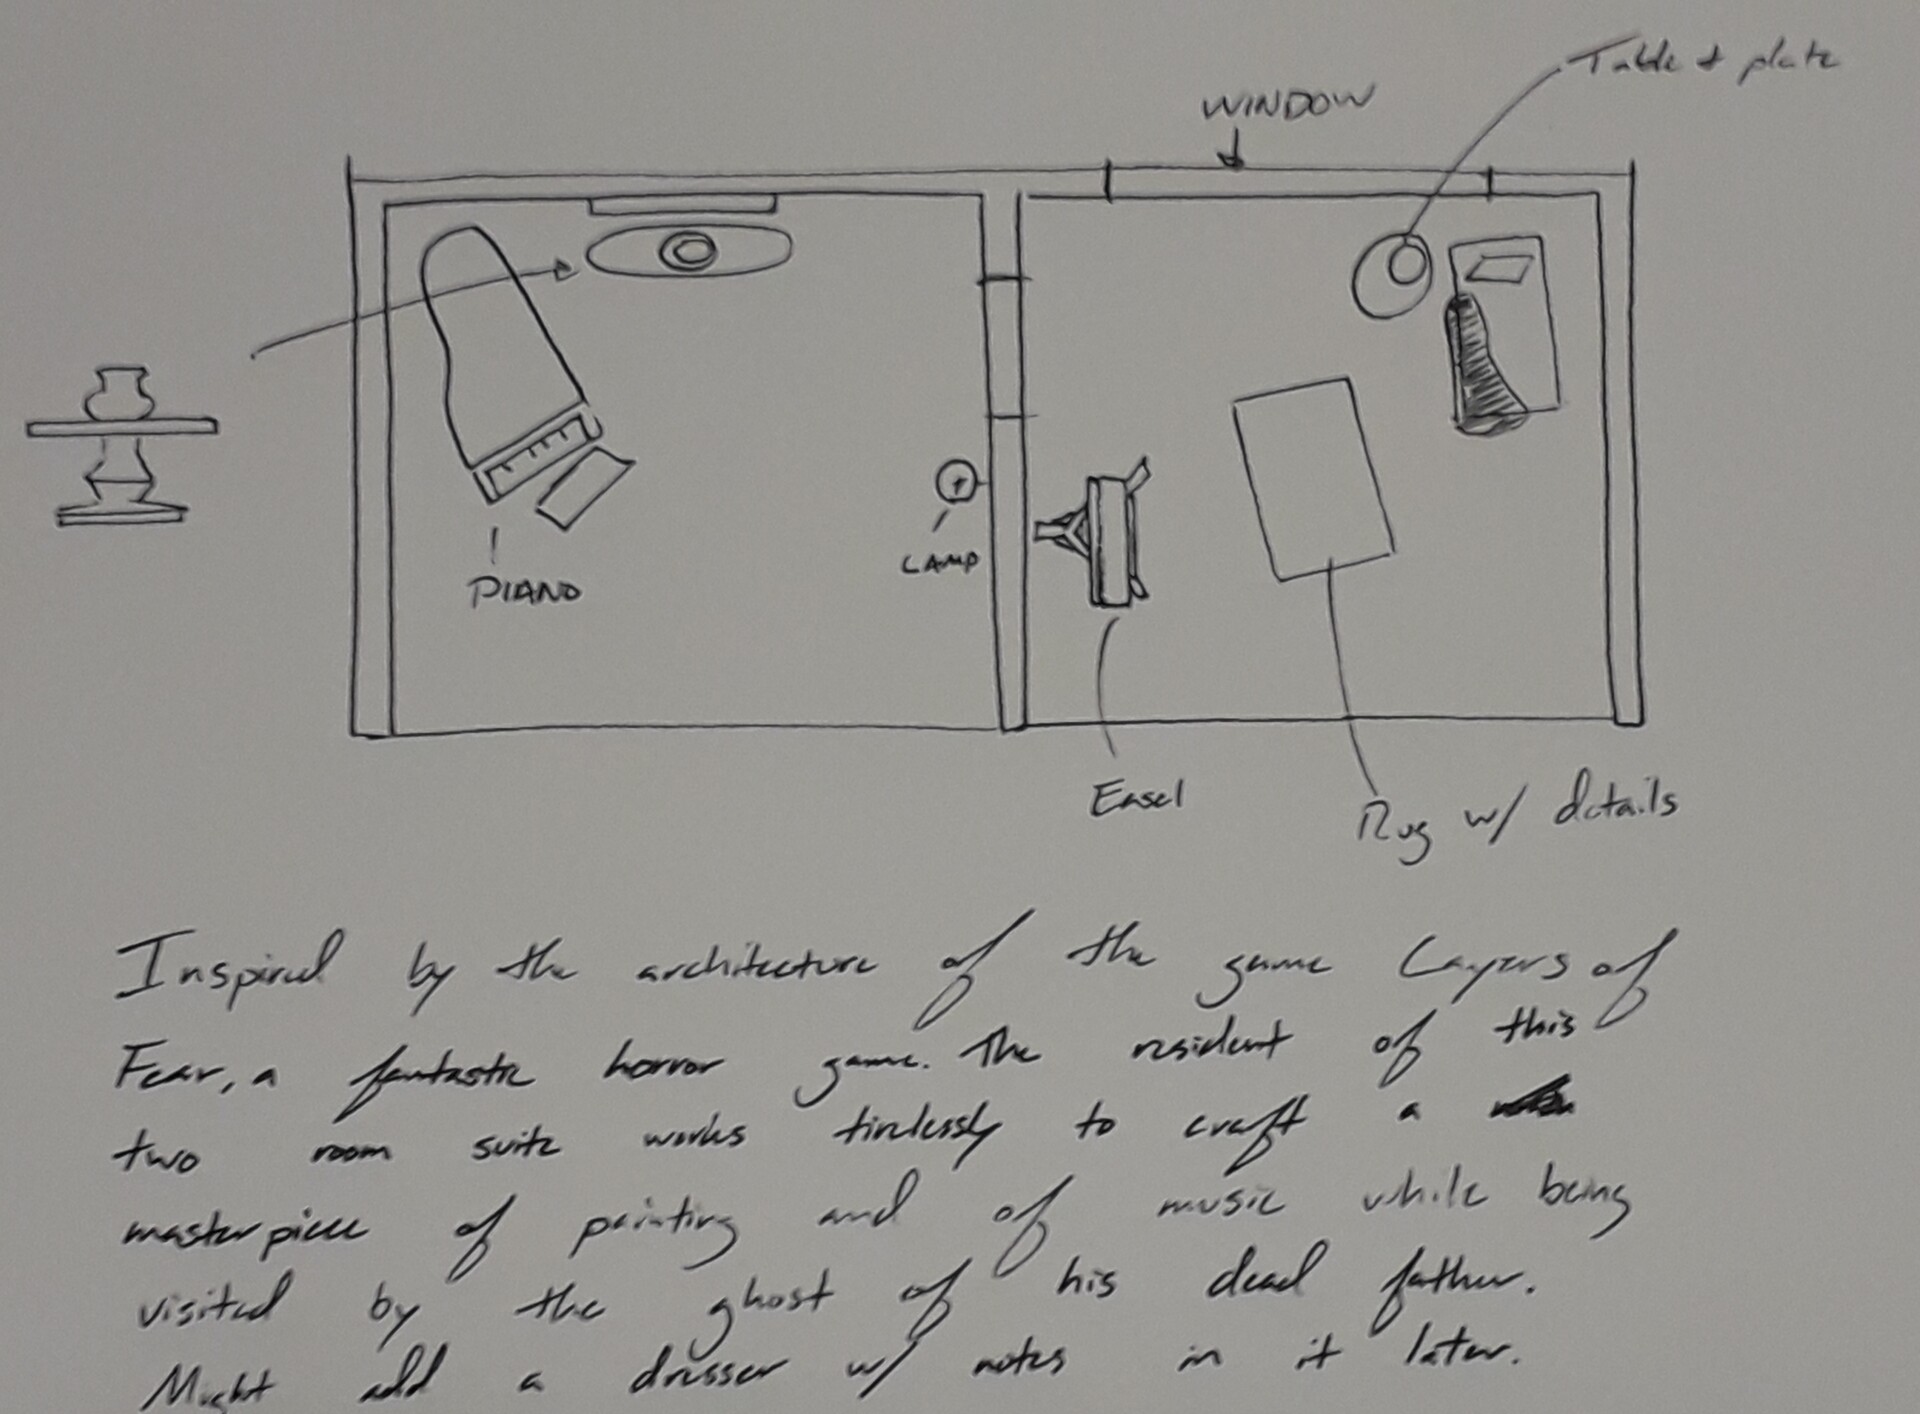 Table + plate
WINDOW
LAMP
PIANO
Easel
Rug w/ details
Inspired by the architecture of the game Layers of
Fear, a fantastic horror game. The resident of this
two room suite works tirelessly to craft a
masterpiece of painting and of music while being
visited by the ghost of his dead father.
Might add a dresser w/ notes in it later.